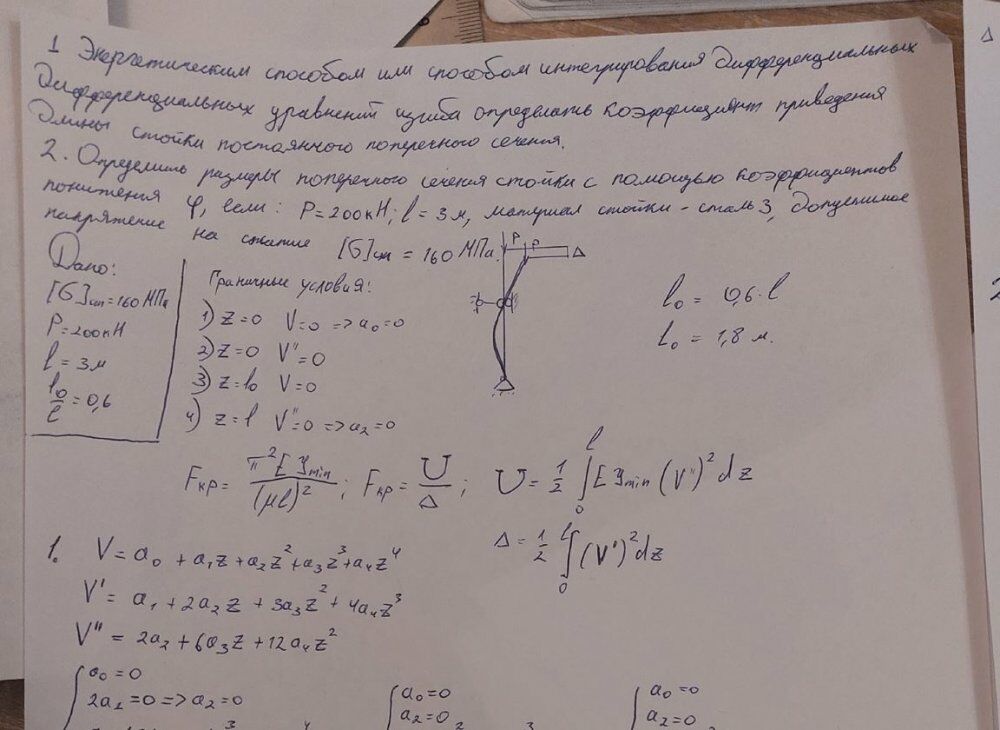 1 Энергетическим способом или способом интегрирования Дифференциальных
Дифференциальных уравнений изгиба определить коэффициент приведения
Длины стойки постоянного поперечного сечения.
2. Определить размеры поперечного сечения стойки с помощью коэффициентов
понижения φ, если: P=200кН; l=3м, материал стойки - сталь 3, Допустимое
напряжение на сжатие [σ]сж = 160 МПа.
P P Δ
Дано:
[σ]сж=160 МПа
P=200кН
l=3м
l₀/l=0,6
Граничные условия:
1) z=0 V=0 => a₀=0
2) z=0 V''=0
3) z=l₀ V=0
4) z=l V''=0 => a₂=0
l₀ = 0,6·l
l₀ = 1,8 м.
Fкр = π²EJmin/(μl)²; Fкр = U/Δ; U = 1/2 ∫₀ˡ EJmin (V'')² dz
Δ = 1/2 ∫₀ˡ (V')² dz
1. V = a₀ + a₁z + a₂z² + a₃z³ + a₄z⁴
V' = a₁ + 2a₂z + 3a₃z² + 4a₄z³
V'' = 2a₂ + 6a₃z + 12a₄z²
a₀=0 a₀=0 a₀=0
2a₂=0 => a₂=0 a₂=0 a₂=0